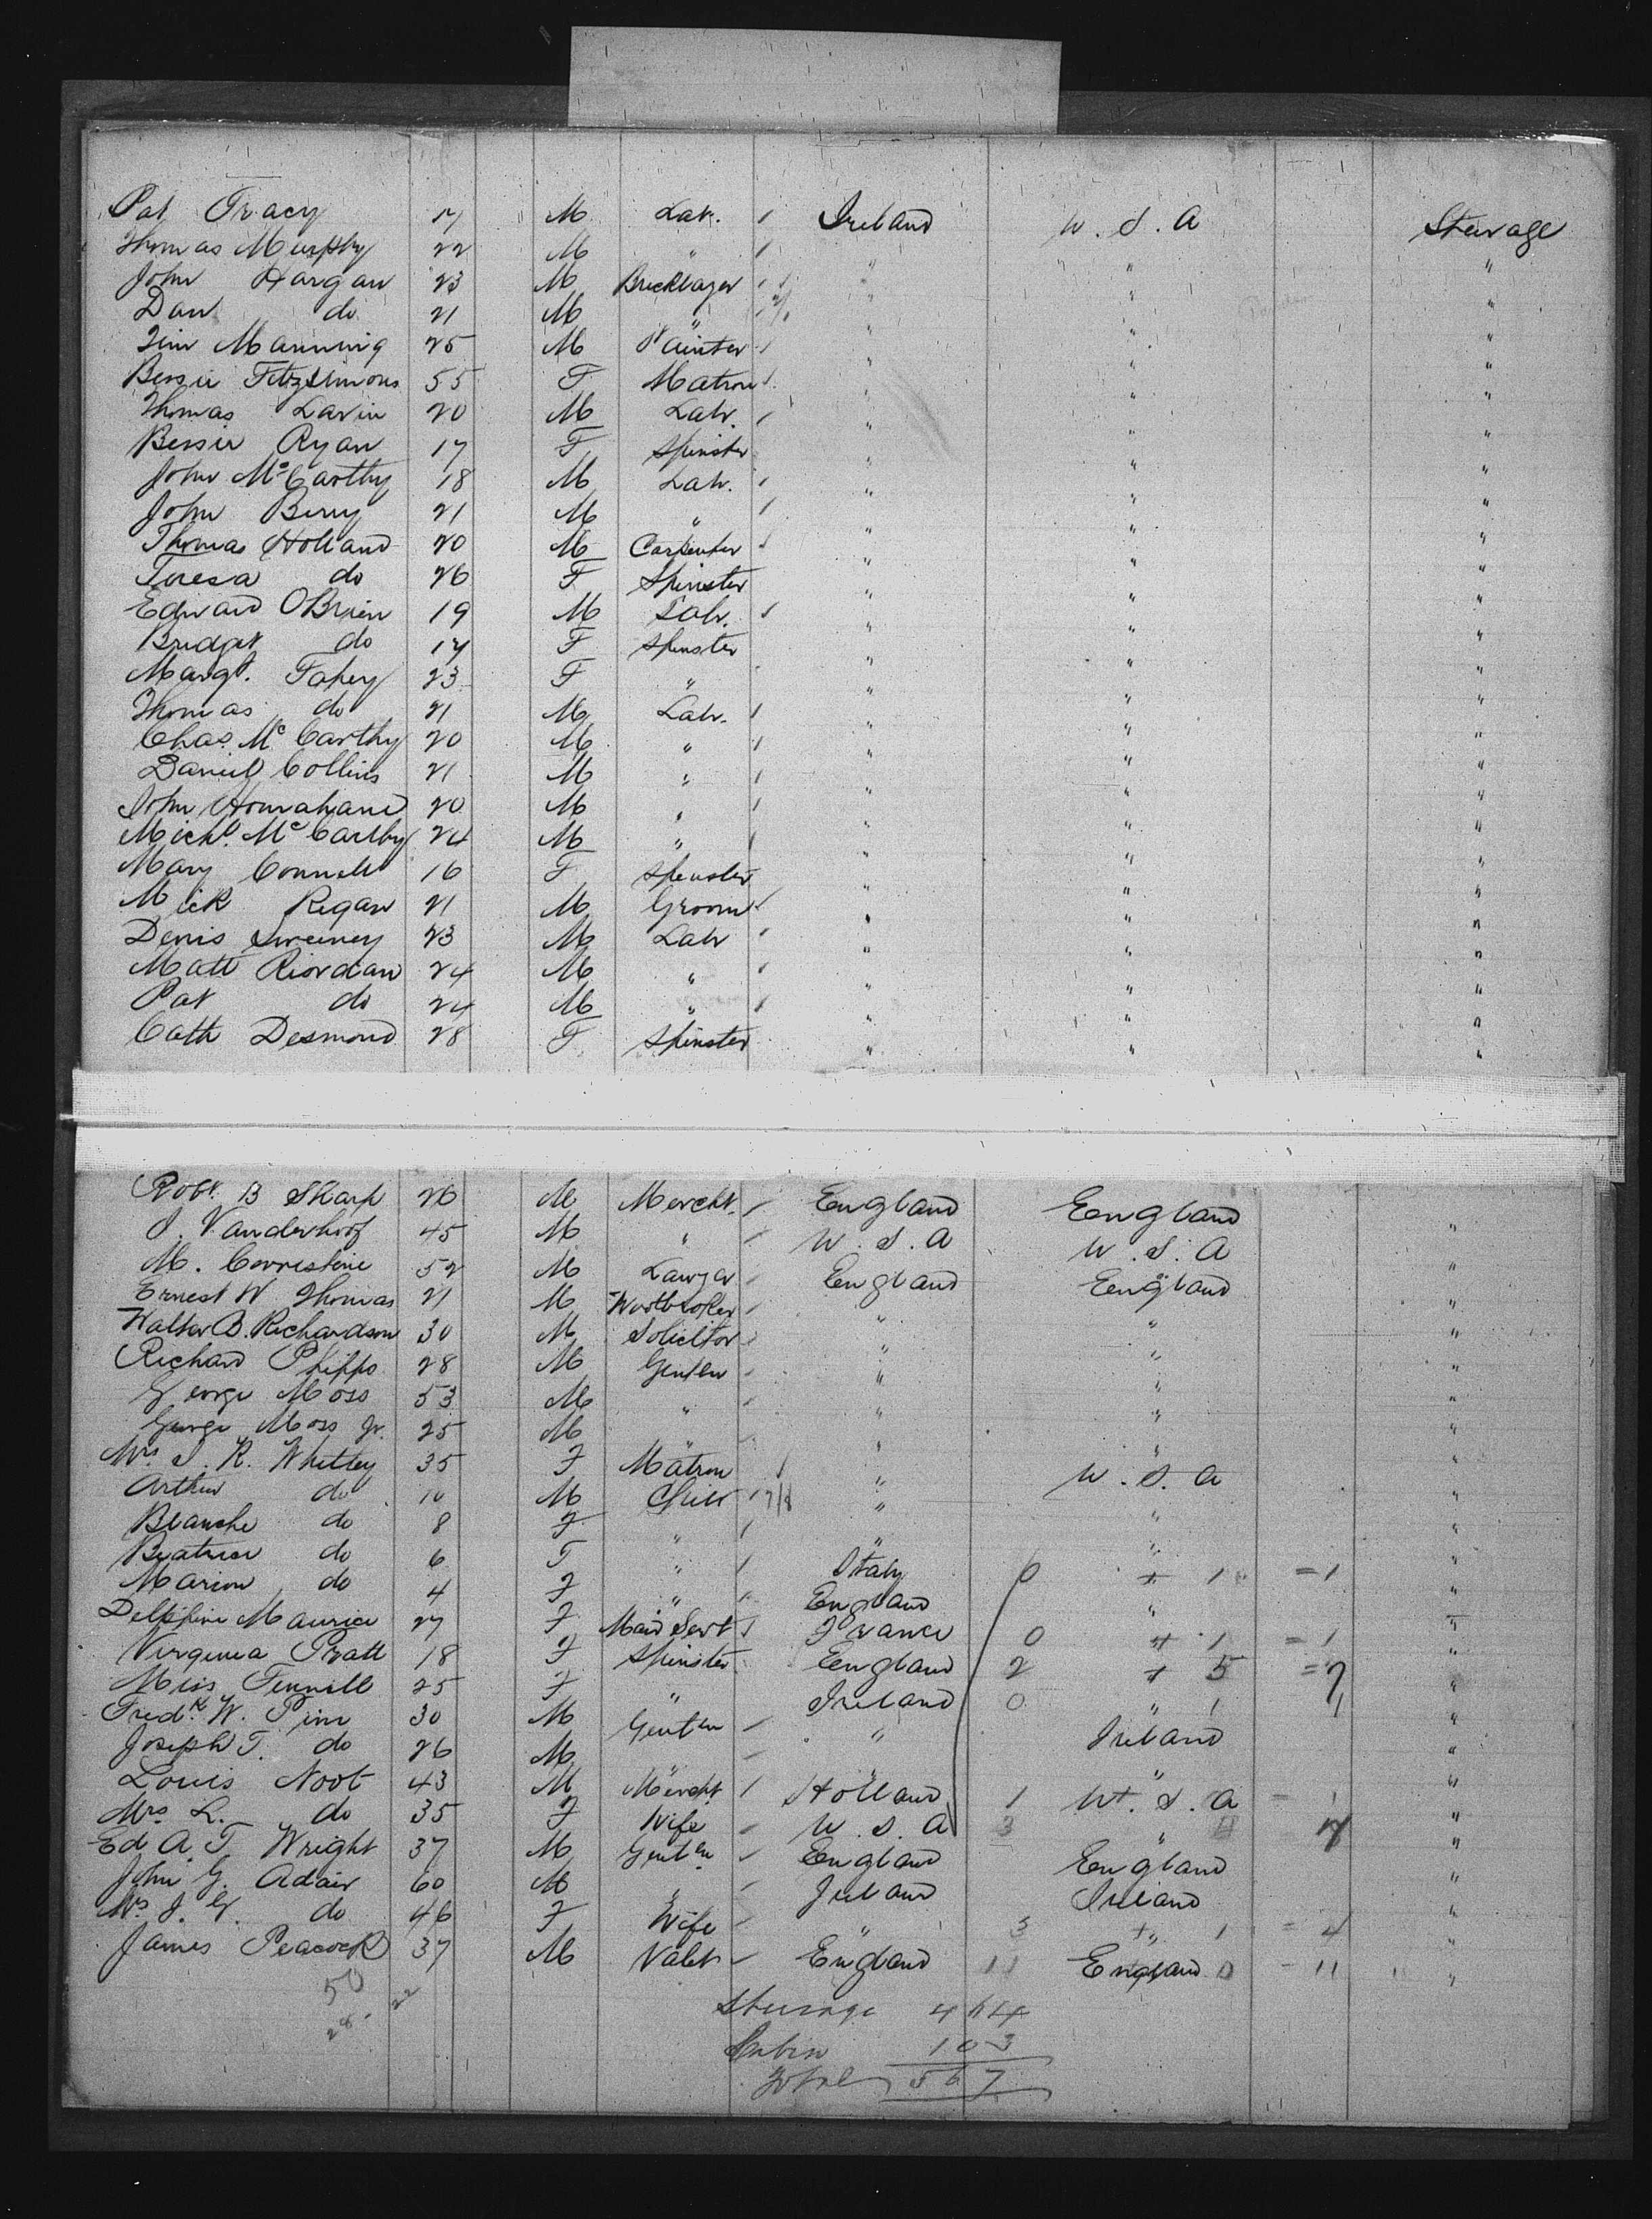 Pat Tracy 17 M Lab. Ireland U.S.A Steerage
Thomas Murphy 22 M " " " "
John Hargan 23 M Bricklayer " " "
Dan do 21 M " " " "
Jim Manning 25 M Painter " " "
Bessie Fitzsimons 55 F Matron " " "
Thomas Lavin 20 M Labr. " " "
Bessie Ryan 17 F Spinster " " "
John McCarthy 18 M Labr. " " "
John Berry 21 M " " " "
Thomas Holland 20 M Carpenter " " "
Teresa do 26 F Spinster " " "
Edward OBrien 19 M Labr. " " "
Bridget do 17 F Spinster " " "
Margt. Fahey 23 F " " " "
Thomas do 21 M Labr. " " "
Chas. Mc Carthy 20 M " " " "
Daniel Collins 21 M " " " "
John 20 M " " " "
Michl. McCarthy 24 M " " " "
Mary Connell 16 F Spinster " " "
Mick Regan 21 M Groom " " "
Denis Sweeney 23 M Labr " " "
Matt Riordan 24 M " " " "
Pat do 24 M " " " "
Cath Desmond 28 F Spinster " " "
Robt. B Sharp 26 M Mercht. England England "
J. Vanderhoof 45 M " U.S.A U.S.A "
M. Correstine 52 M Lawyer England England "
Ernest W Thomas 21 M " " "
Walter B. Richardson 30 M Solicitor " " "
Richard Phipps 28 M Gentln " " "
George Moss 53 M " " " "
George Moss Jr. 25 M " " " "
Mrs. S. R. Whitley 35 F Matron " U.S.A "
Arthur do 10 M Child 7/8 " " "
Blanche do 8 F " " " "
Beatrice do 6 F " Italy 0 + 1 = 1 "
Marion do 4 F " England " "
Delphine Maurice 27 F Maid Servt France 0 + 1 = 1 "
Virginia Pratt 18 F Spinster England 2 + 5 = 7 "
Miss Fennell 25 F " Ireland 0 " 1 1 "
Fredk. W. Pim 30 M Gentln " Ireland "
Joseph T. do 26 M " " " "
Louis Noot 43 M Mercht Holland 1 U.S.A = 1 "
Mrs L. do 35 F Wife U.S.A 3 " 4 7 "
Ed A. T Wright 37 M Gentln England England "
John G. Adair 60 M " Ireland Ireland "
Mrs J. G. do 46 F Wife " 3 + " 1 = 4 "
James Peacock 37 M Valet England 11 England 0 - 11 "
50
28 - 22
Steerage 464
Cabin 103
Total 567